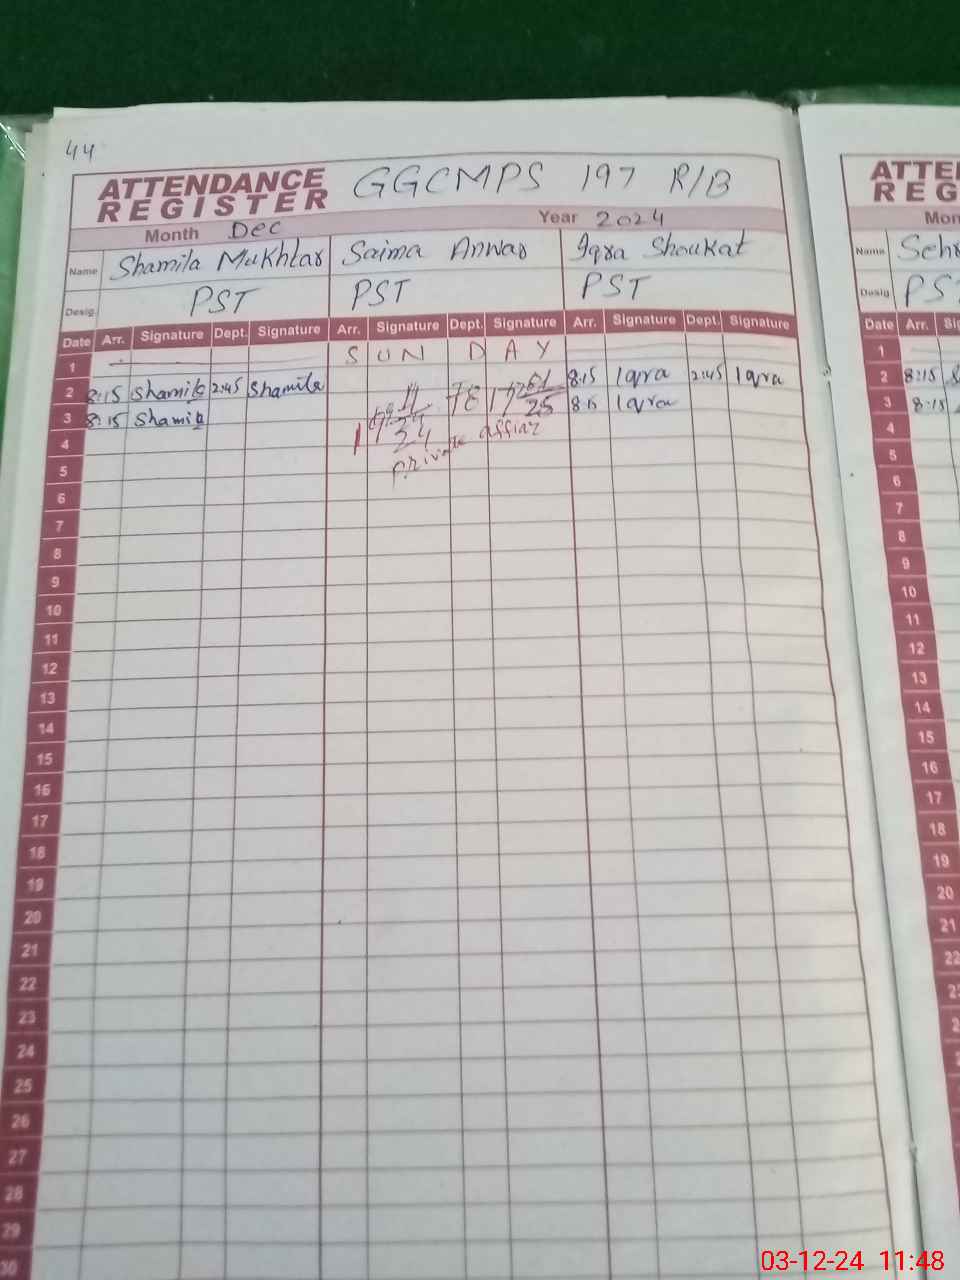 44
ATTENDANCE REGISTER GGCMPS 197 R/B
Month Dec Year 2024
Name Shamila Mukhtar Saima Anwar Iqra Shoukat
Desig. PST PST PST
Date Arr. Signature Dept. Signature Arr. Signature Dept. Signature Arr. Signature Dept. Signature
1 S U N D A Y
2 8:15 Shamila 2:45 Shamila 8:15 Iqra 2:45 Iqra
3 8:15 Shamila 25 8:15 Iqra
4 24 private affiar
5
6
7
8
9
10
11
12
13
14
15
16
17
18
19
20
21
22
23
24
25
26
27
28
29
30
ATTE
REG
Mon
Name Sehr
Desig. PS
Date Arr. Si
1
2 8:15
3 8:15
4
5
6
7
8
9
10
11
12
13
14
15
16
17
18
19
20
21
22
03-12-24 11:48